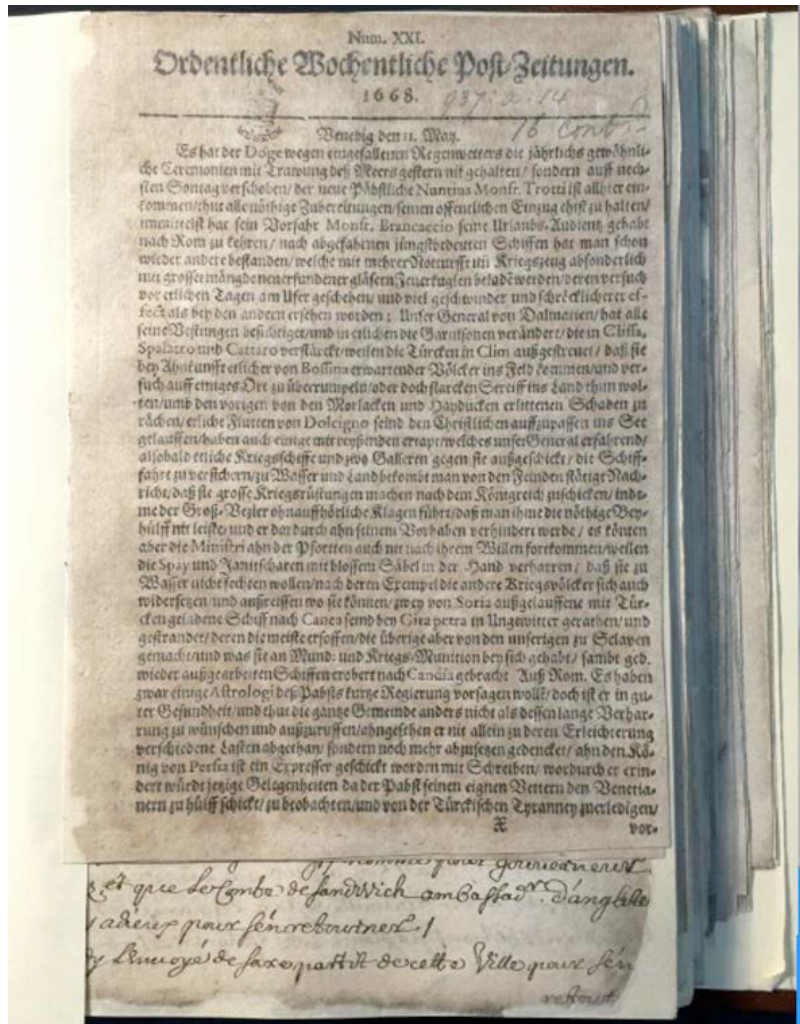 Num. XXI.
Ordentliche Wochentliche Post-Zeitungen.
1668.
937. a. 14
16 Cont.
Venedig den 11. May.
Es hat der Doge wegen eingefallenen Regenwetters die jährlichs gewöhnli-
che Ceremonien mit Trawung deß Meers gestern nit gehalten/ sondern auff nech-
sten Sontag verschoben/ der neue Päbstliche Nuntius Monsr. Trotti ist allhier ein-
kommen/ thut alle nöthige Zubereitungen/ seinen offentlichen Einzug ehist zu halten/
immittelst hat sein Vorfahr Monsr. Brancaccio seine Urlaubs-Audientz gehabt
nach Rom zu kehren/ nach abgefahrnen jüngstbedeuten Schiffen hat man schon
wieder andere bestanden/ welche mit mehrer Notturfft un Kriegszeug absonderlich
mit grosser mängde neuerfundener gläsern Feuerkuglen beladē werden/ deren versuch
vor etlichen Tagen am Ufer geschehen/ und viel geschwinder und schröcklicherer ef-
fect als bey den andern ersehen worden; Unser General von Dalmatien/ hat alle
seine Vestungen besichtiget/ und in etlichen die Garnisonen verändert/ die in Clissa,
Spalatro und Cattaro verstärckt/ weilen die Türcken in Clim außgestreuet/ daß sie
bey Ahnkunfft etlicher von Bossina erwartender Völcker ins Feld kommen/ und ver-
such auff einiges Ort zu überrumpeln/ oder doch starcken Streiff ins Land thun wol-
ten/ umb den vorigen von den Morlacken und Hayducken erlittenen Schaden zu
rächen/ etliche Flutten von Dolcigno seind den Christlichen auffzupassen ins See
geloffen/ haben auch einige mit reyßenden ertapt/ welches unser General erfahrend/
alsobald etliche Kriegsschiffe und zwo Galleren gegen sie außgeschickt/ die Schiff-
fahrt zu versichern/ zu Wasser und Land bekombt man von den Feinden stätige Nach-
richt/ daß sie grosse Kriegsrüstungen machen nach dem Königreich zuschicken/ inde-
me der Groß-Vezier ohnauffhörliche Klagen führt/ daß man ihme die nöthige Bey-
hülff nit leiste/ und er dardurch ahn seinem Vorhaben verhindert werde/ es könten
aber die Ministri ahn der Pforten auch nit nach ihrem Willen fortkommen/ weilen
die Spay und Janitscharen mit blossem Säbel in der Hand verharren/ daß sie zu
Wasser nicht fechten wollen/ nach deren Exempel die andere Kriegsvölcker sich auch
widersetzen/ und außreissen wo sie können/ zwey von Soria außgelauffene mit Tür-
cken geladene Schiff nach Canea seind bey Gira petra in Ungewitter gerathen/ und
gestrandet/ deren die meiste ersoffen/ die überige aber von den unserigen zu Sclaven
gemacht/ und was sie an Mund: und Kriegs-Munition bey sich gehabt/ sambt ged.
wieder außgearbeiten Schiffen erobert nach Candia gebracht Auß Rom. Es haben
zwar einige Astrologi deß Pabsts kurtze Regierung vorsagen wollē/ doch ist er in gu-
ter Gesundheit/ und thut die gantze Gemeinde anders nicht als dessen lange Verhar-
rung zu wünschen und außzuruffen/ ahngesehen er nit allein zu deren Erleichterung
verschiedene Lasten abgethan/ sondern noch mehr abzusetzen gedencket/ ahn den Kö-
nig von Persia ist ein Expresser geschickt worden mit Schreiben/ wordurch er erin-
dert würdt jetzige Gelegenheiten da der Pabst seinen eignen Vettern den Venetia-
nern zu hülff schickt/ zu beobachten/ und von der Türckischen Tyranney zuerledigen/
X
vor-
pour gouverneur
et que le Comte de Sandwich ambassadr. d'anglete
adieux pour s'en retourner /
L'envoyé de saxe partit de cette Ville pour s'en
retour